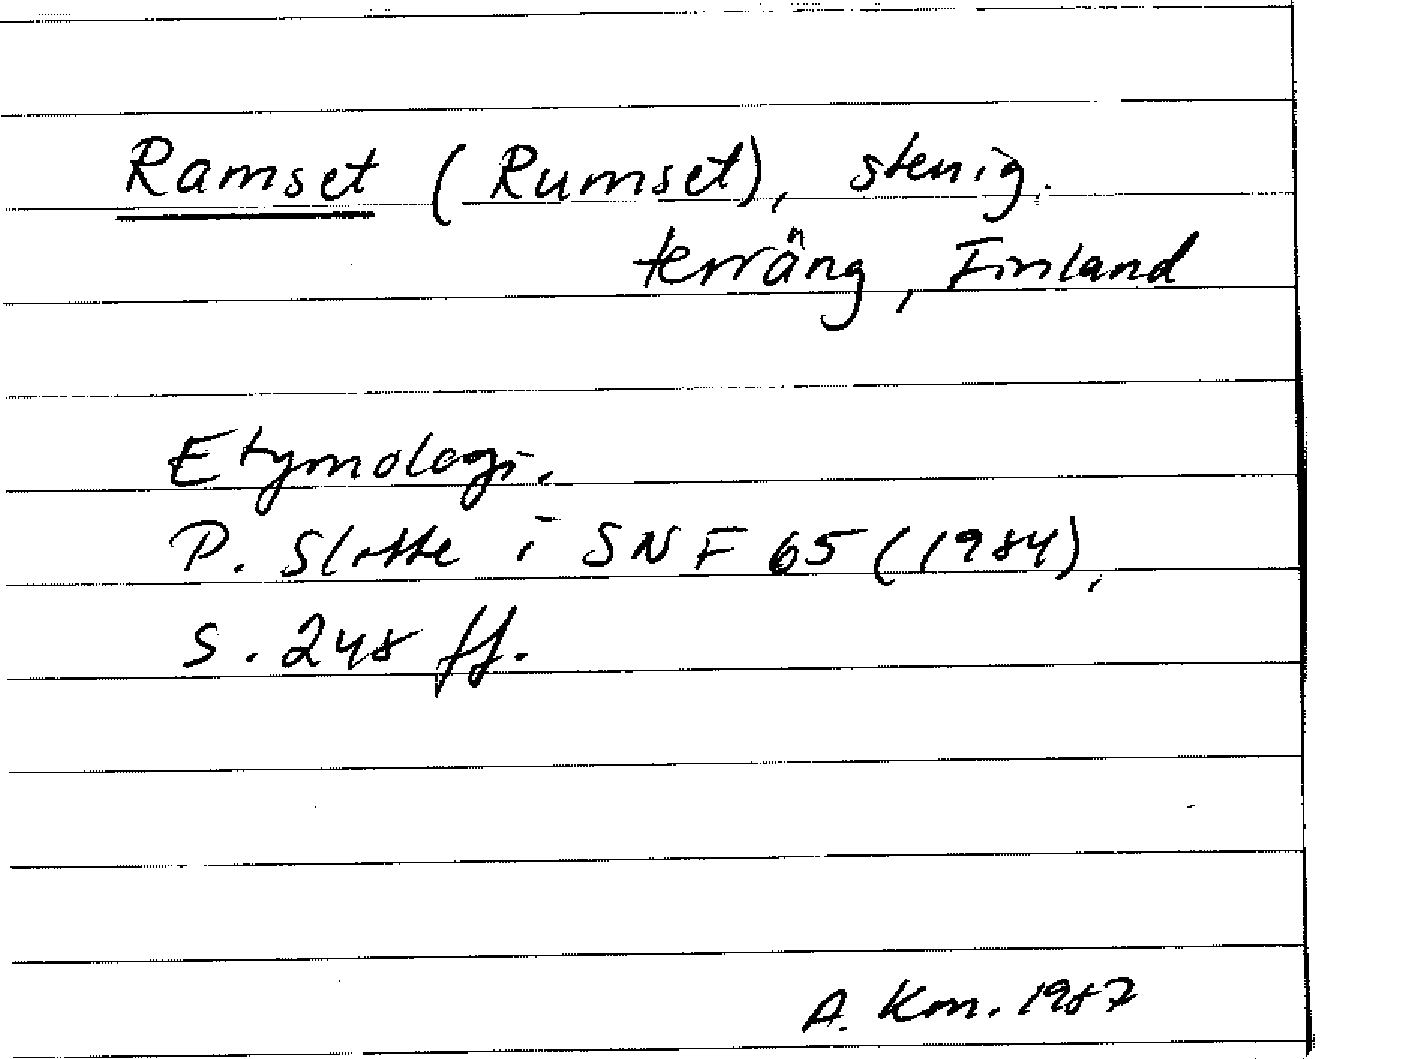 Ramset (Rumset), stenig.
terräng, Finland
Etymologi.
P. Slotte i SNF 65 (1984),
s. 248 ff.
A. Km. 1987